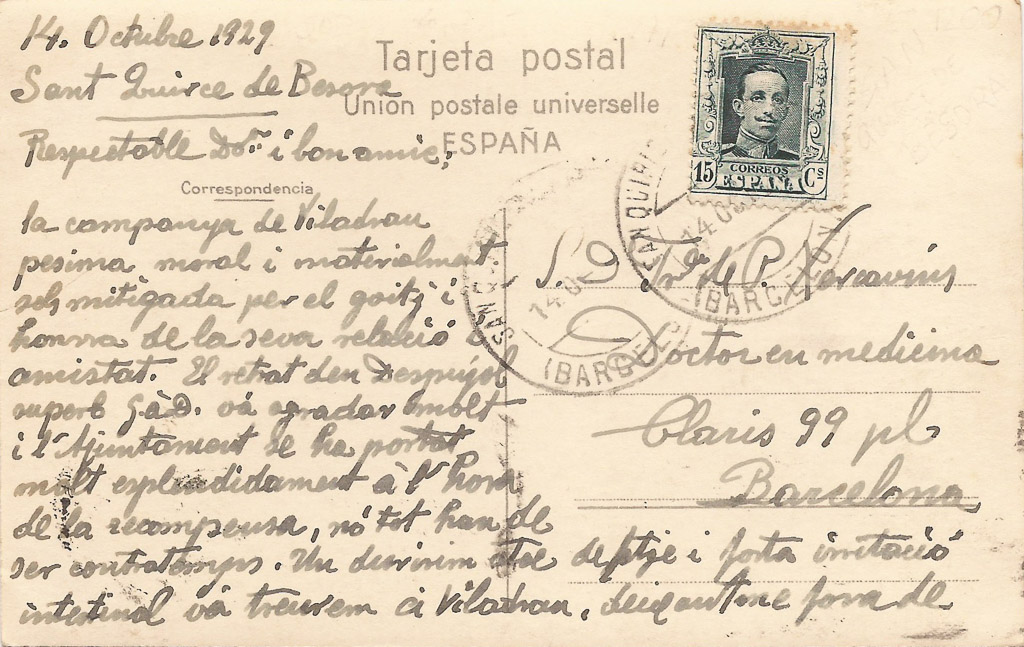 14. Octubre 1929
Sant Quirce de Besora
Tarjeta postal
Union postale universelle
ESPAÑA
Respectable Dor. i bon amic;
Correspondencia
la campanya de Viladrau
pesima moral i materialment
sols mitigada per el goitj i
honrra de la seva relació i
amistat. El retrat den Despujol
superb G.àD. vá agradar molt
i l'Ajuntament se ha portat
molt esplendidament à l'hora
de la recompensa, nó tot han de
ser contratemps. Un
intestinal vá treurem a Viladrau, deixantme fora de
CORREOS
15 ESPAÑA Cs
SAN QUIRI
14 OC
(BARCELON
SAN Q
14 OC
(BARCEL
S. D. Dn. de P.
Doctor en medicina
Claris 99 pl
Barcelona
i forta irritació